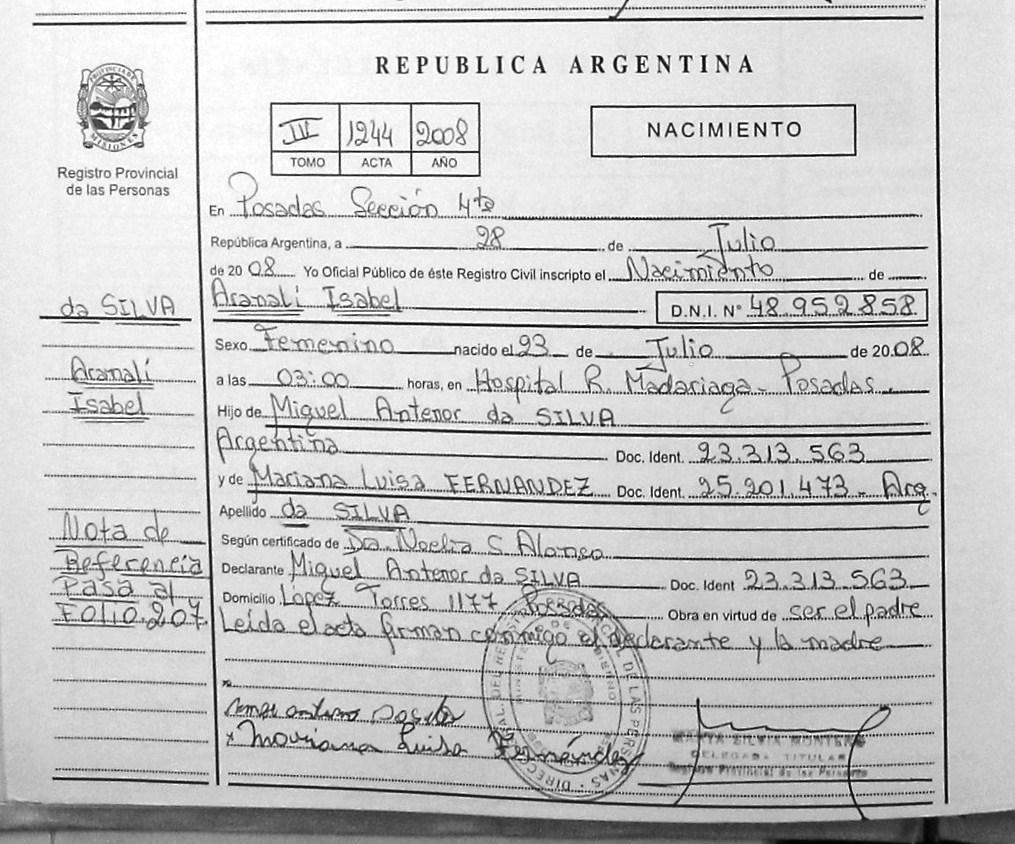 REPUBLICA ARGENTINA
PROVINCIA DE MISIONES
Registro Provincial
de las Personas
III 1244 2008
TOMO ACTA AÑO
NACIMIENTO
En Posadas Sección 4ta
República Argentina, a 28 de Julio
de 2008 Yo Oficial Público de éste Registro Civil inscripto el Nacimiento de
Aranalí Isabel D.N.I. N° 48.952.858
Sexo Femenino nacido el 23 de Julio de 2008
a las 03:00 horas, en Hospital R. Madariaga - Posadas.
Hijo de Miguel Antenor da SILVA
Argentina Doc. Ident. 23.313.563
y de Mariana Luisa FERNANDEZ Doc. Ident. 25.201.473 - Arg.
Apellido da SILVA
Según certificado de Dra Noelia S. Alonso
Declarante Miguel Antenor da SILVA Doc. Ident 23.313.563
Domicilio Lopez Torres 1177 Posadas Obra en virtud de ser el padre
Leída el acta firman conmigo el declarante y la madre
da SILVA
Aranalí
Isabel
Nota de
Referencia
Pasa al
FOLIO 207.
x Mariana Luisa Fernández
MARTA SILVIA MONTERO
DELEGADA TITULAR
Registro Provincial de las Personas